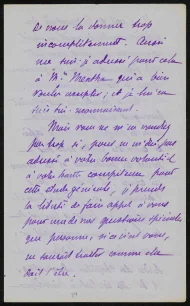 de vous la donner trop
incomplètement. Aussi
me suis-je adressé pour cela
à Mr qui a bien
voulu ; et je lui en
suis reconnaissant.
Mais vous ne m'en voudrez
pas trop si, pour m'être
adressé à votre bonne volonté et
à votre haute compétence pour
cette étude générale, je prends
la liberté de faire appel à vous
pour une de ces questions spéciales
que personne, si ce n'est vous,
ne saurait traiter comme elle
doit l'être.